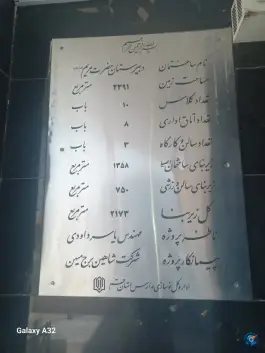 بسم الله الرحمن الرحیم
نام ساختمان دبیرستان حضرت مریم ....
مساحت زمین ۲۲۹۱ مترمربع
تعداد کلاس ۱۰ باب
تعداد اتاق اداری ۸ باب
تعداد سالن و کارگاه ۳ باب
زیربنای ساختمان ۱۳۵۸ مترمربع
زیربنای سالن ورزشی ۷۵۰ مترمربع
کل زیربنا ۲۱۷۳ مترمربع
ناظر پروژه مهندس یاسر داودی
پیمانکار پروژه شرکت شاهین برج مبین
اداره کل نوسازی مدارس استان
Galaxy A32